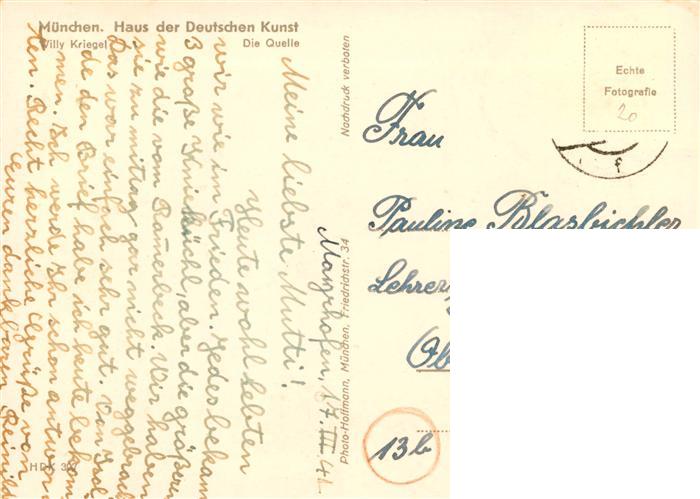 München. Haus der Deutschen Kunst
Willy Kriegel Die Quelle
Mayrhofen, 17. III. 41
Meine liebste Mutti!
Heute wohl lebten
wir wie im Frieden. Jeder bekam
3 große Knieküchl, aber die größeren
wie die vom Bauerbeck. Wir haben
sie zu mittag gar nicht weggebracht
Das war einfach sehr gut. Von
de den Brief habe ich heute bekom
men. Ich werde Ihr schon antwor
ten. Recht herrliche Grüße von
Euren dankbaren
HDK 307
Photo-Hoffmann, München, Friedrichstr. 34
Nachdruck verboten
Echte
Fotografie
20
Frau
Pauline Blasbichler
Lehrer
Ob
13b